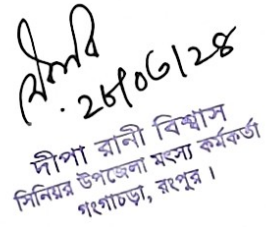 ২৫/০৬/২৪
দীপা রানী বিশ্বাস
সিনিয়র উপজেলা মৎস্য কর্মকর্তা
গংগাচড়া, রংপুর।